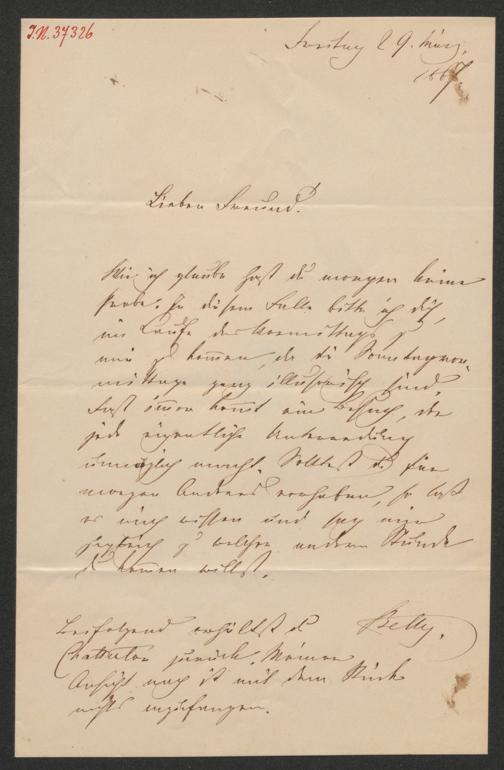 I.N. 37326
Freitag 29. März,
1867.
Lieber Freund!
Wie ich glaube hast du morgen keine
Probe. In diesem Falle bitte ich dich,
im Laufe des Vormittags zu
mir zu kommen, da die Sonntagvor-
mittage ganz illusorisch sind.
Fast immer kommt ein Besuch, der
jede eigentliche Unterredung
unmöglich macht. Solltest du für
morgen Anderes vorhaben, so laß
es mich wissen und sag mir
zugleich zu welcher andern Stunde
du kommen willst.
Betty.
Beifolgend erhältst du
Chatterton zurück. Meiner
Ansicht nach ist mit dem Stück
nichts anzufangen.